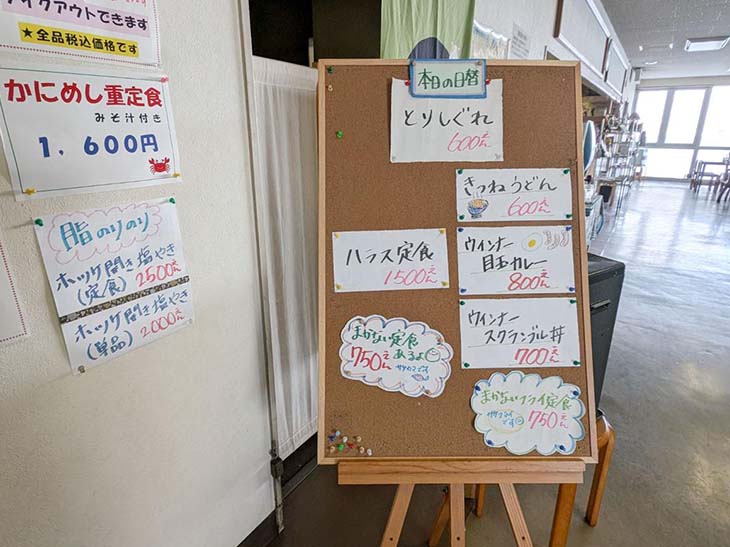 テイクアウトできます
★全品税込価格です
かにめし重定食
みそ汁付き
1,600円
脂のりのり
ホッケ開き塩やき
(定食) 2500えん
ホッケ開き塩やき
(単品) 2000えん
本日の日替
とりしぐれ
600えん
きつねうどん
600えん
ハラス定食
1500えん
ウインナー
目玉カレー
800えん
ウインナー
スクランブル丼
700えん
まかない定食
あるよ
750えん
まかないフライ定食
750えん